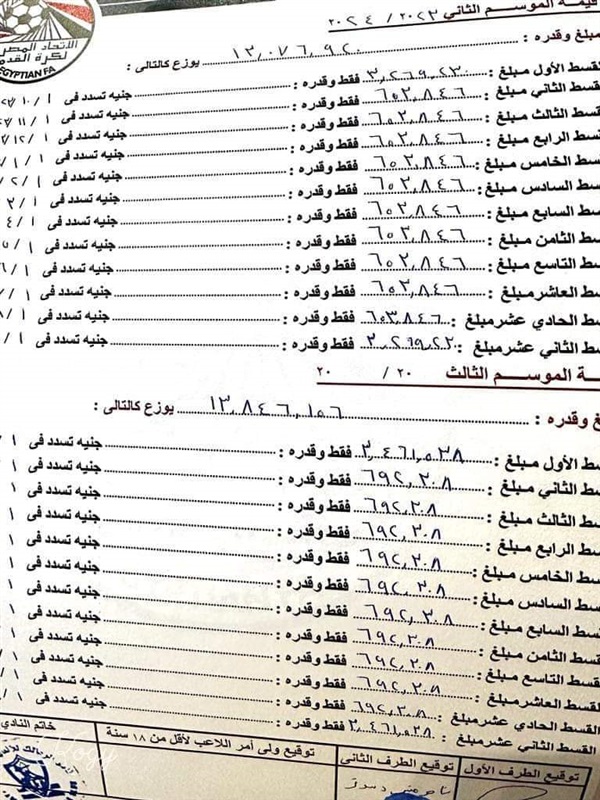 قيمة الموسم الثاني ٢٠٢٣ / ٢٠٢٤
الاتحاد المصرى لكرة القدم
EGYPTIAN FA
مبلغ وقدره : ١٣,٠٧٦,٩٢٠ يوزع كالتالى :
القسط الأول مبلغ : ٣,٢٦٩,٢٣٠ فقط وقدره : جنيه تسدد فى ١ / ١٠ /
القسط الثاني مبلغ : ٦٥٣,٨٤٦ فقط وقدره : جنيه تسدد فى ١ / ١١ /
قسط الثالث مبلغ : ٦٥٣,٨٤٦ فقط وقدره : جنيه تسدد فى ١ / ١٢ /
قسط الرابع مبلغ : ٦٥٣,٨٤٦ فقط وقدره : جنيه تسدد فى ١ / ١ /
سط الخامس مبلغ : ٦٥٣,٨٤٦ فقط وقدره : جنيه تسدد فى ١ / ٢ /
سط السادس مبلغ : ٦٥٣,٨٤٦ فقط وقدره : جنيه تسدد فى ١ / ٣ /
سط السابع مبلغ : ٦٥٣,٨٤٦ فقط وقدره : جنيه تسدد فى ١ / ٤ /
سط الثامن مبلغ : ٦٥٣,٨٤٦ فقط وقدره : جنيه تسدد فى ١ / ٥
سط التاسع مبلغ : ٦٥٣,٨٤٦ فقط وقدره : جنيه تسدد فى ١ / ٦
سط العاشر مبلغ : ٦٥٣,٨٤٦ فقط وقدره : جنيه تسدد فى ١ / ٧
سط الحادي عشر مبلغ : ٦٥٣,٨٤٦ فقط وقدره : جنيه تسدد فى ١ / ٨
سط الثاني عشر مبلغ : ٣,٢٦٩,٢٣٠ فقط وقدره : جنيه تسدد فى ١ /
ـة الموســم الثالث ٢٠ / ٢٠
غ وقدره : ١٣,٨٤٦,١٥٦ يوزع كالتالى :
سط الأول مبلغ : ٣,٤٦١,٥٣٨ فقط وقدره : جنيه تسدد فى ١ /
سط الثاني مبلغ : ٦٩٢,٣٠٨ فقط وقدره : جنيه تسدد فى ١ /
سط الثالث مبلغ : ٦٩٢,٣٠٨ فقط وقدره : جنيه تسدد فى ١ /
سط الرابع مبلغ : ٦٩٢,٣٠٨ فقط وقدره : جنيه تسدد فى ١ /
قسط الخامس مبلغ : ٦٩٢,٣٠٨ فقط وقدره : جنيه تسدد فى ١ /
قسط السادس مبلغ : ٦٩٢,٣٠٨ فقط وقدره : جنيه تسدد فى ١ /
قسط السابع مبلغ : ٦٩٢,٣٠٨ فقط وقدره : جنيه تسدد فى ١ /
قسط الثامن مبلغ : ٦٩٢,٣٠٨ فقط وقدره : جنيه تسدد فى ١ /
قسط التاسع مبلغ : ٦٩٢,٣٠٨ فقط وقدره : جنيه تسدد فى ١ /
القسط العاشر مبلغ : ٦٩٢,٣٠٨ فقط وقدره : جنيه تسدد فى ١ /
القسط الحادي عشر مبلغ : ٦٩٢,٣٠٨ فقط وقدره : جنيه تسدد فى ١ /
القسط الثاني عشر مبلغ : ٣,٤٦١,٥٣٨ فقط وقدره : جنيه تسدد فى ١ /
توقيع الطرف الأول توقيع الطرف الثانى توقيع ولى أمر اللاعب لأقل من ١٨ سنة خاتم النادي